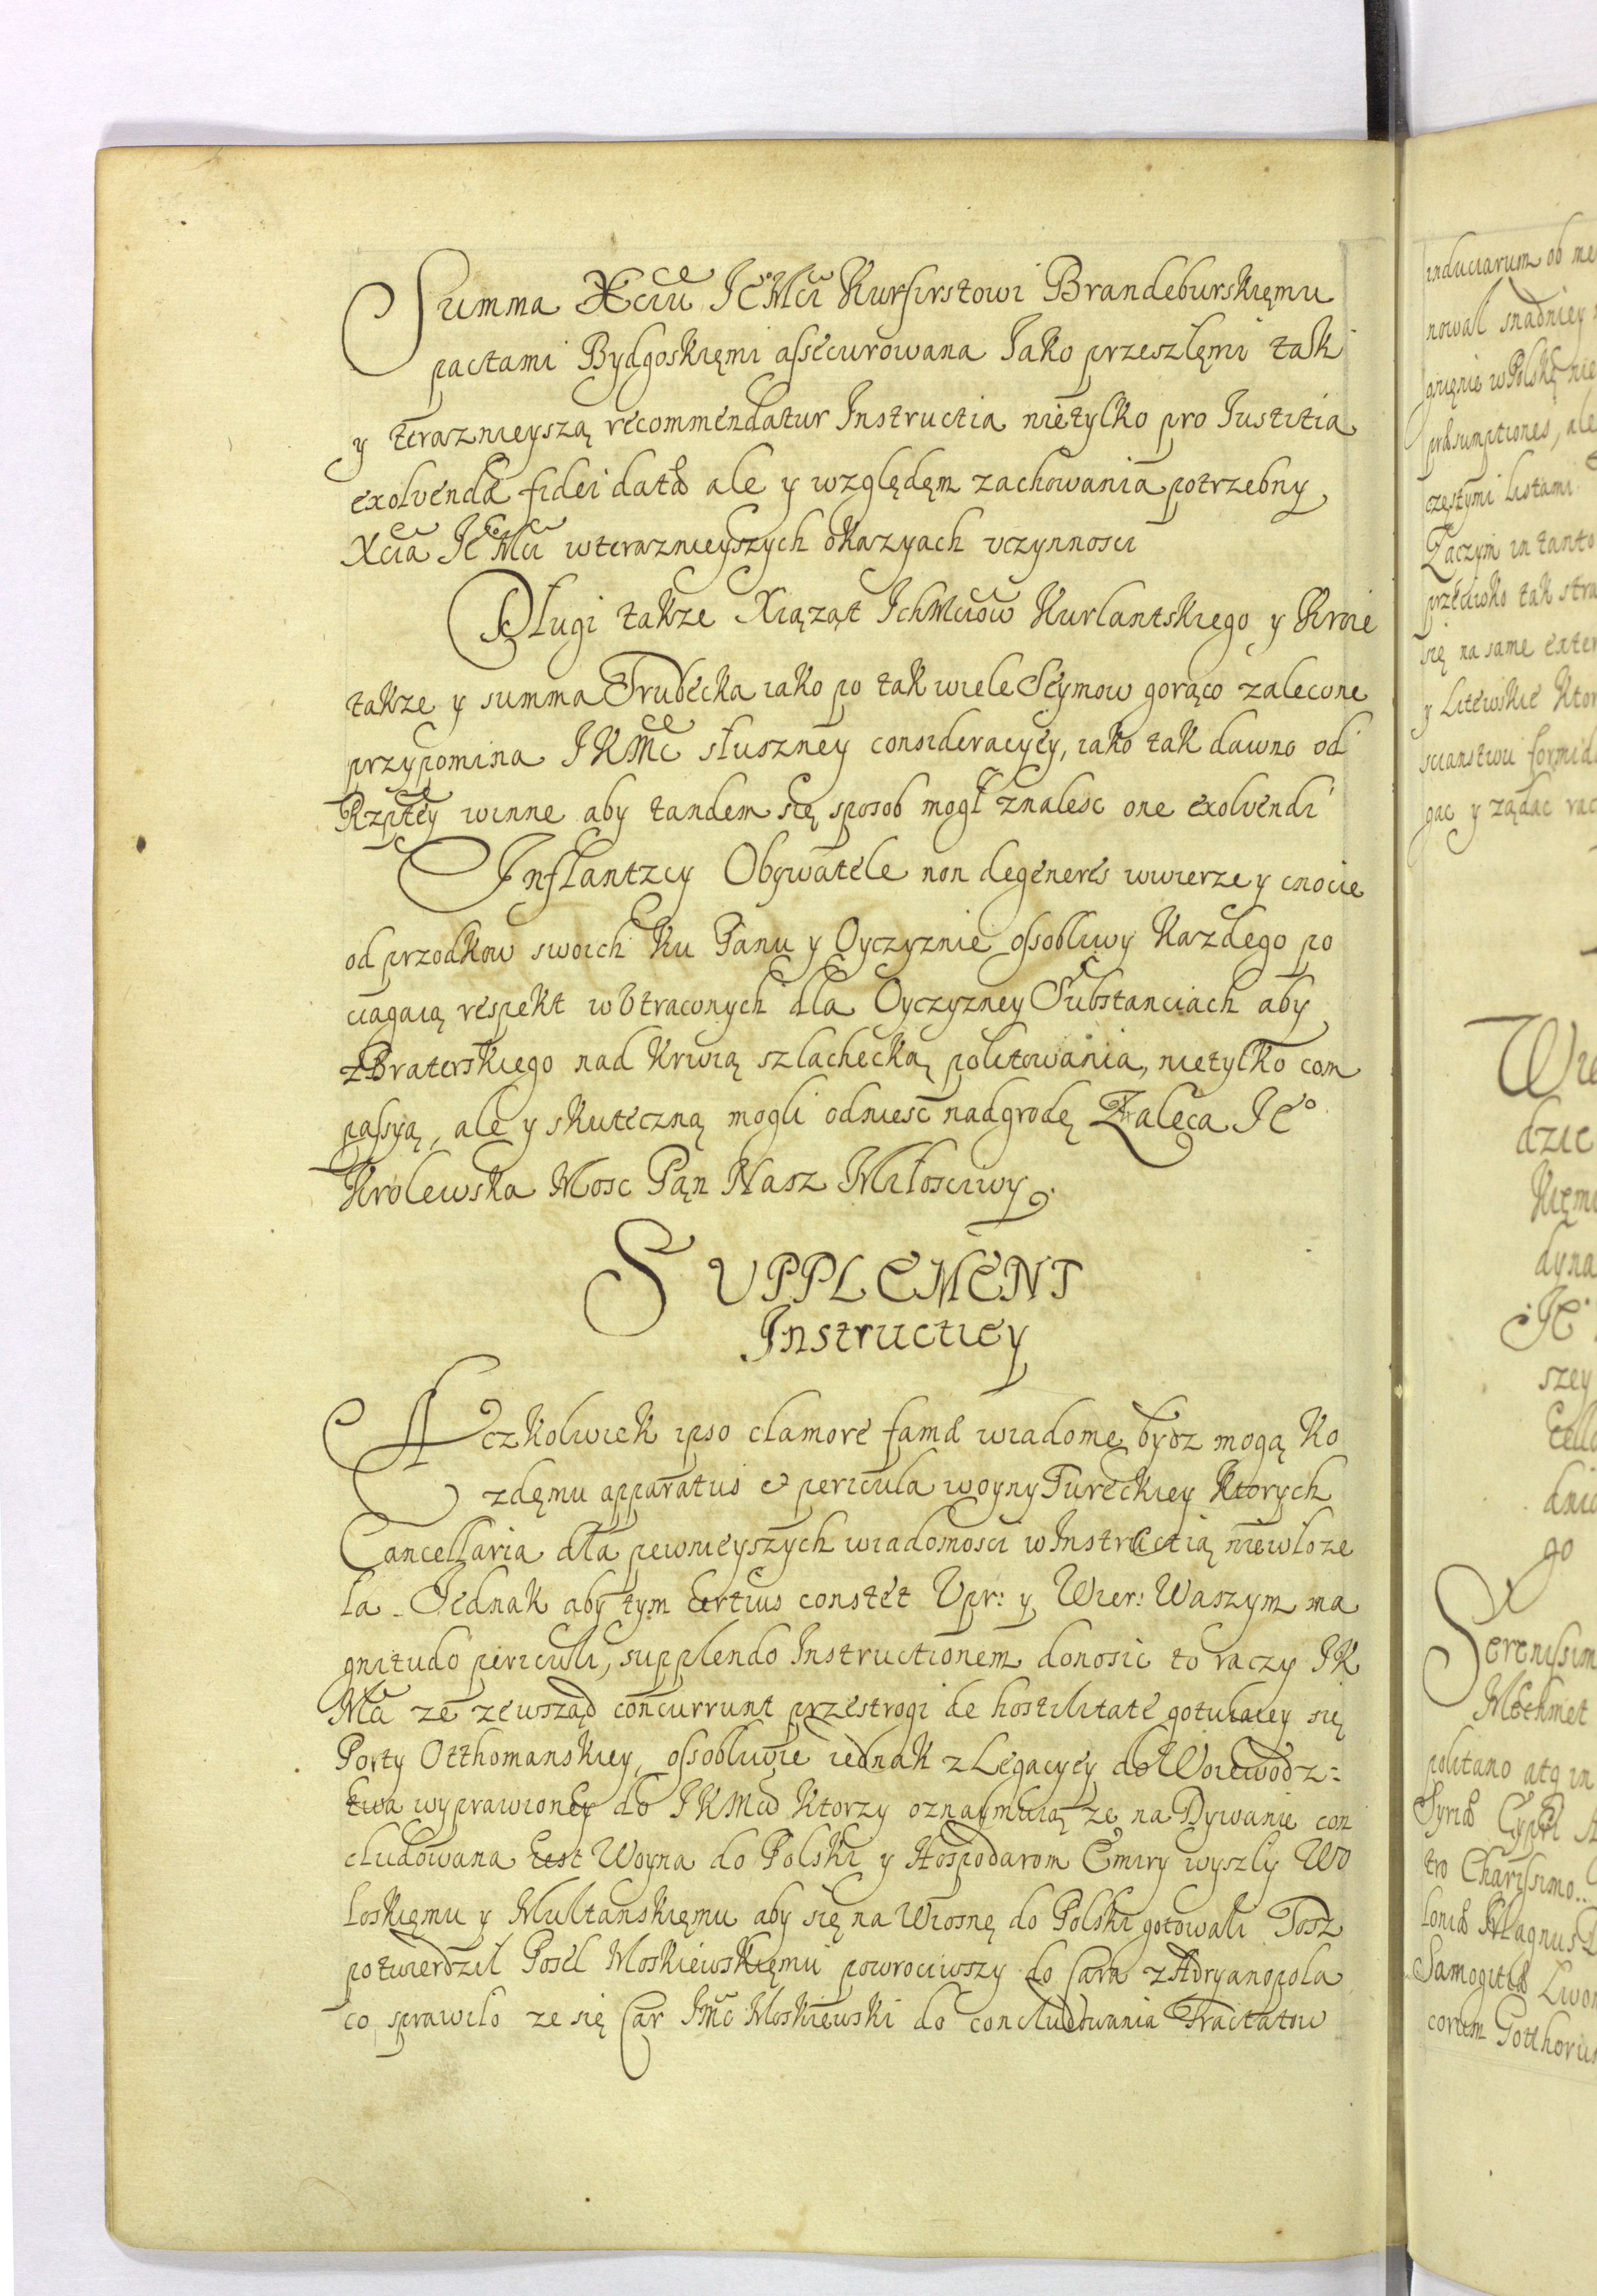 Summa Xciu JeMci Kurfirstowi Brandeburskięmu
pactami Bydgoskięmi assecurowana Jako przeszlęmi tak
y terazniejszą recommendatur Instructia nietylko pro Justitia
exolvendæ fidei datæ ale y względęm zachowania potrzebny
Xcia Je Mci wteraznieyszych okazyach vczynnosci
Długi takze Xiąząt IchMciow Kurlantskiego y Kroie
takze y summa Trubecka iako po tak wiele Seymow gorąco zalecone
przypomina JKMc słuszney consideracyey, iako tak dawno od
Rzptey winne aby tandem się sposob mogł znalesc one exolvendi
Inflantzcy Obywatele non degeneres wwierze y cnocie
od przodkow swoich ku Panu y Oyczyznie ossobliwy Kazdego po
ciągaią respekt w Utraconych dla Oyczyzney Substanciach aby
z Braterskiego nad krwią szlachecką politowania, nietylko com
passyą, ale y skuteczną mogli odniesc nadgrodę Zaleca Je°
Krolewska Mosc Pąn Nasz Miłosciwy.
SUPPLEMENT
Instructiey
Aczkolwiek ipso clamore famæ wiadome bydz mogą ko
zdęmu apparatus & pericula woyny Tureckiey ktorych
Cancellaria dla pewnieyszych wiadomosci w Instructią niewloze
la. Jednak aby tym certius constet Vpr: y Wier: Waszym ma
gnitudo periculi, supplendo Instructionem donosic to raczy JK
Mc ze zewsząd concurrunt przestrogi de hostilitate gotuiącey się
Porty Otthomanskiey, ossobliwie iednak z Legacyey do Woiewodz=
twa wyprawioney do JKMci ktorzy oznaymuią ze na Dywanie con
cludowana iest Woyna do Polski y Hospodarom Emiry wyszly Wo
loskięmu y Multanskięmu aby się na Wiosnę do Polski gotowali Tosz
potwierdzil Posel Moskiewskięmi powrociwszy do Cara z Adryanopola
co sprawilo ze się Car Jmc Moskiewski do concludowania Tractatow
induciarum ob me
nowal snadniey
gnięnie w Polskę nie
præsumptiones, ale
częstymi Listami
Zaczym in tanto
przeciwko tak stra
się na same exter
y Litewskie Ktor
scianstwu formid
gac y ządac rac
Wie
dzie
Kięmu
dyna
Je
szey
Cell
dnic
go
Serenissim
Mechmet
politano atq in
Syriæ Cypri
tro Charissimo..
loniæ Magnus D
Samogitiæ Livon
corum Gotthorum